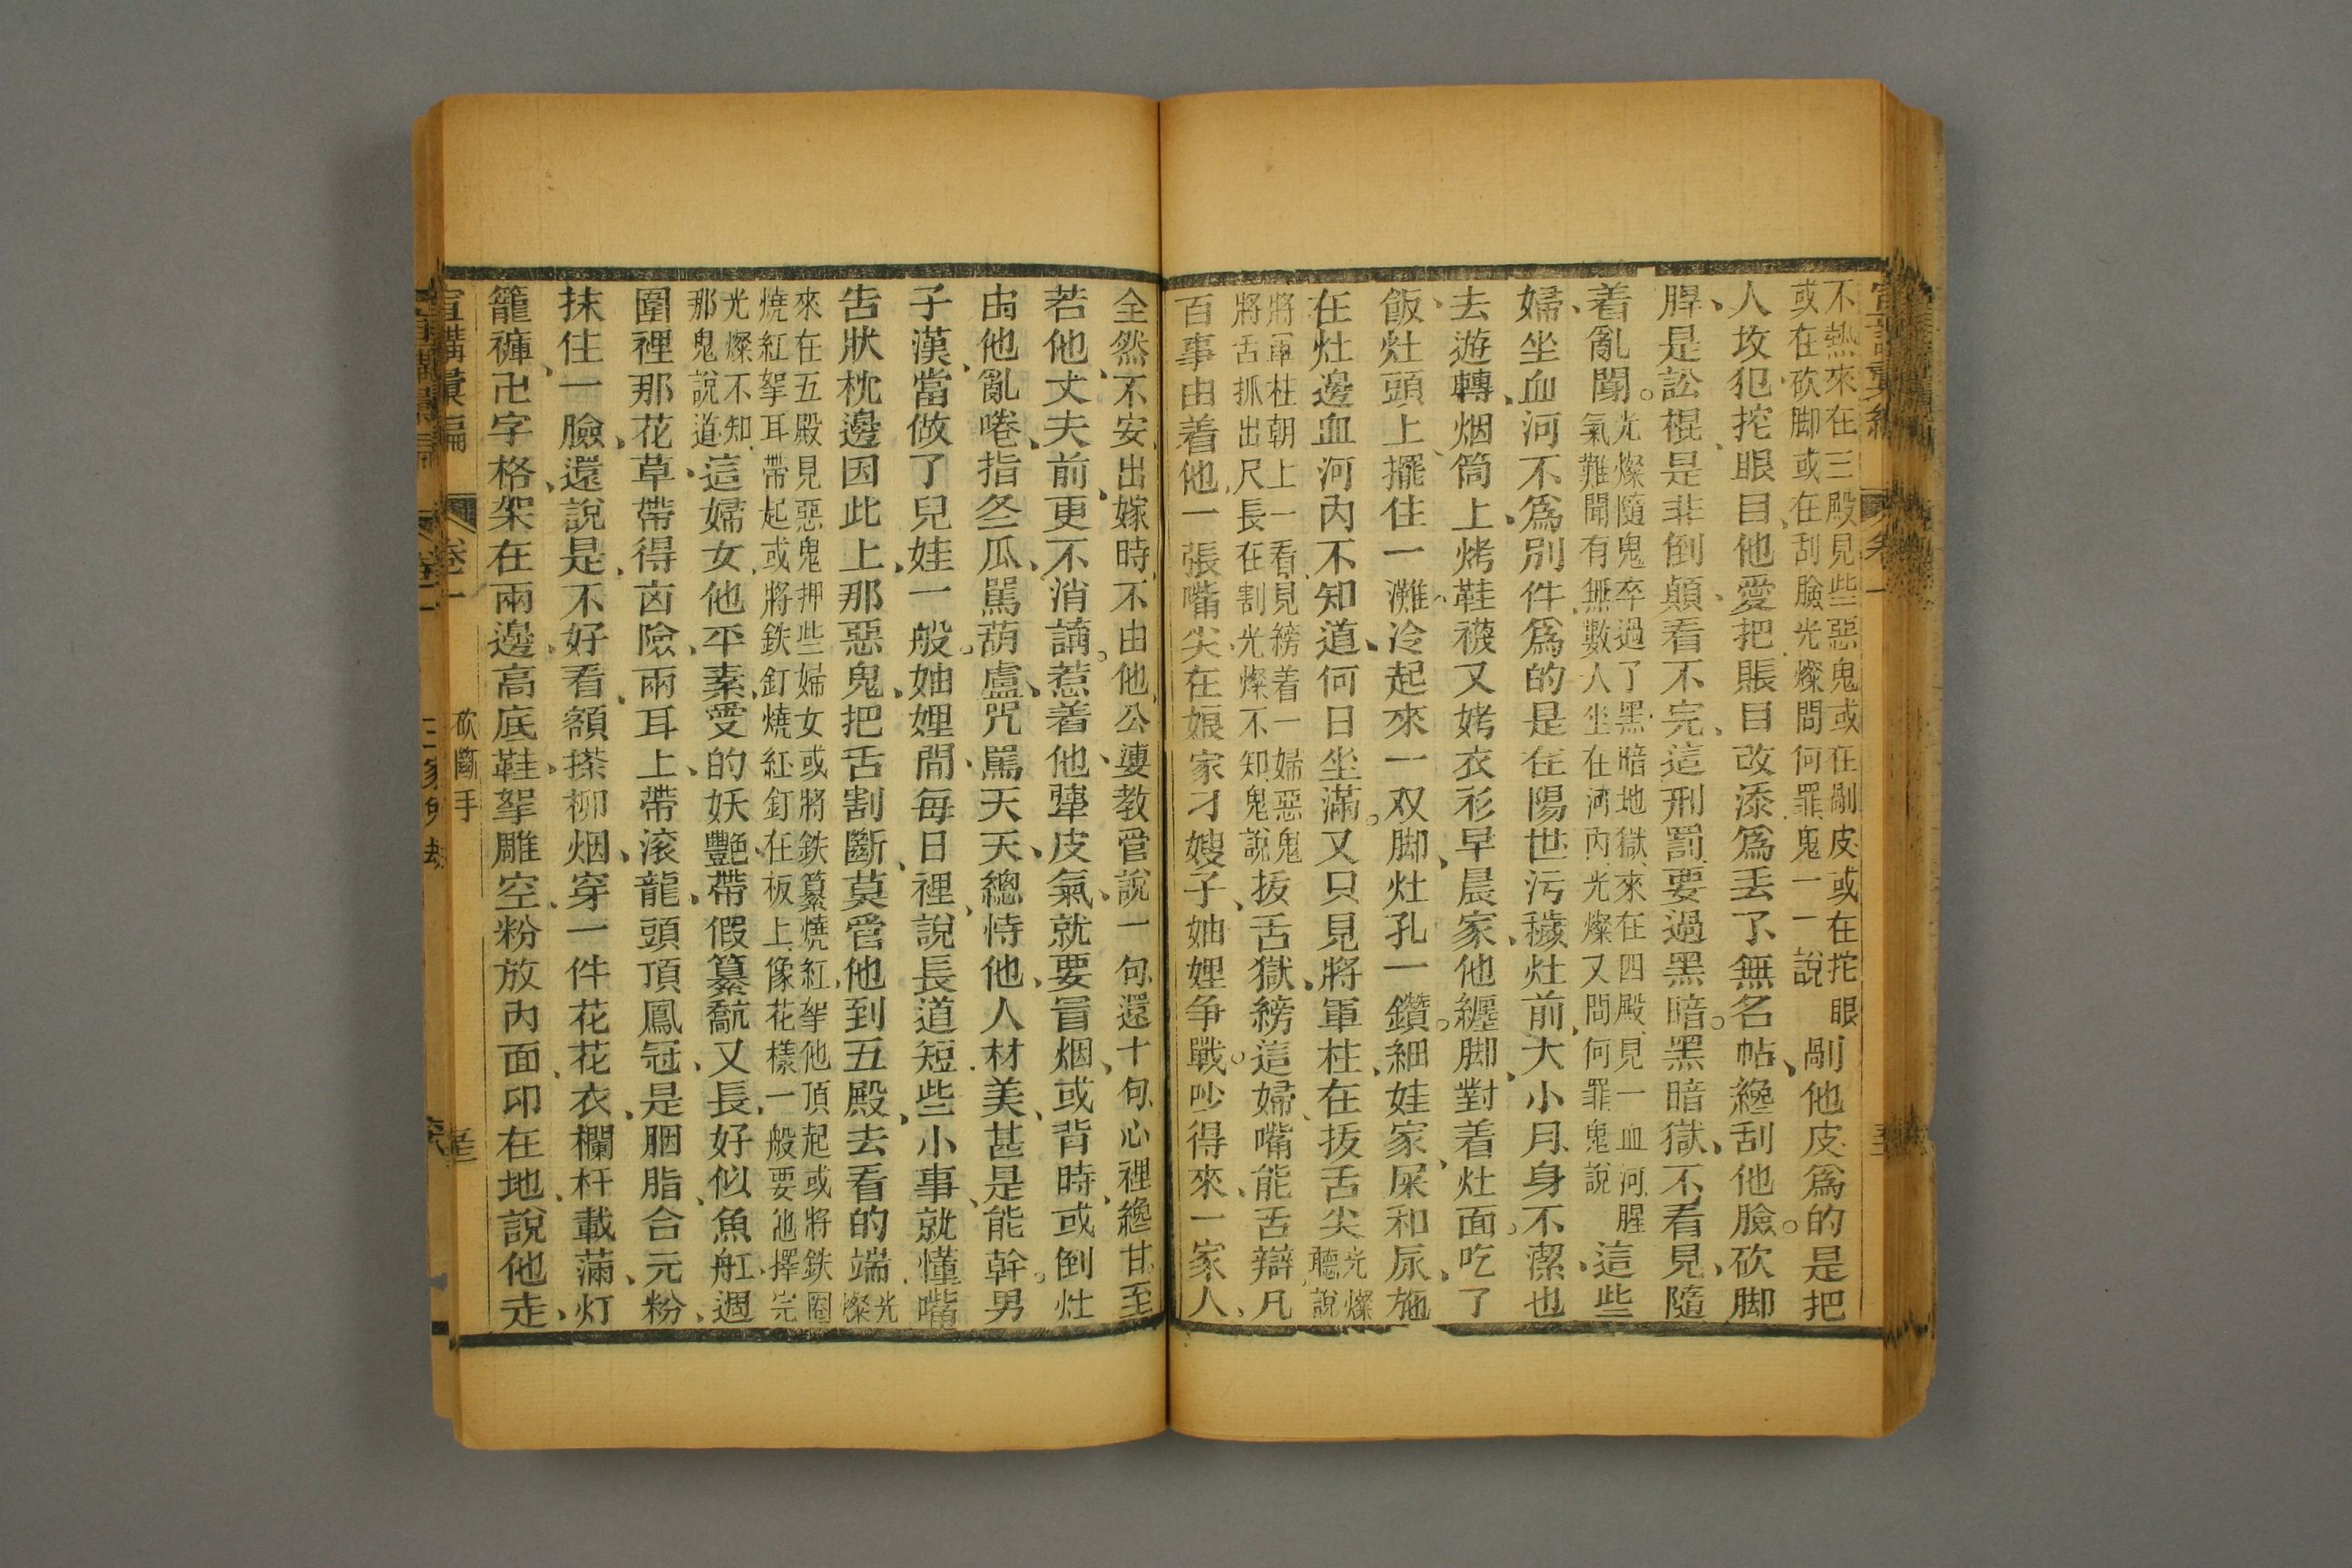 不熱來在三殿見些惡鬼或在剮皮或在挖眼
或在砍脚或在刮臉光燦問何罪鬼一一說
剮他皮爲的是把
人坟犯、挖眼目、他愛把賬目改添、爲丢了無名帖、纔刮他臉。砍脚
脾、是訟棍、是非倒顛、看不完、這刑罰、要過黑暗。黑暗獄、不看見、隨
着亂闖。
光燦隨鬼卒過了黑暗地獄、來在四殿、見一血河、腥
氣難聞有無數人坐在河內、光燦又問何罪鬼說
這些
婦、坐血河、不爲別件、爲的是在陽世污穢灶前、大小月、身不潔、也
去遊轉、烟筒上、烤鞋襪又烤衣衫早晨家、他纏脚、對着灶面。吃了
飯、灶頭上、擺住一灘、冷起來一双脚、灶孔一鑽。細娃家、屎和尿、施
在灶邊血河內不知道、何日坐滿。又只見、將軍柱、在抜舌尖
光燦
聽說
將軍柱朝上一看、見綁着一婦惡鬼
將舌抓出尺長在割光燦不知、鬼說
抜舌獄、綁這婦、嘴能舌辯、凡
百事由着他、一張嘴尖、在娘家、刁嫂子、妯娌争戰。吵得來、一家人、
全然不安、出嫁時、不由他、公婆教管、說一句、還十句、心裡纔甘、至
若他、丈夫前、更不消誦。惹着他、犟皮氣、就要冒烟、或背時、或倒灶
由他亂啳、指冬瓜、駡葫盧、咒駡天天、總恃他、人材美、甚是能幹。男
子漢、當做了兒娃一般。妯娌間、每日裡、說長道短、些小事、就懂嘴
告狀枕邊因此上、那惡鬼、把舌割斷、莫管他、到五殿、去看的端
光
燦
來在五殿見惡鬼押些婦女或將鉄纂燒紅、拏他頂起或將鉄圈
燒紅拏耳帶起或將鉄釘燒紅釘在板上、像花樣一般要他擇完
光燦不知、
那鬼說道、
這婦女、他平素、愛的妖豔、帶假纂、喬又長、好似魚舡、週
圍裡那花草、帶得㐫險、兩耳上、帶滚龍、頭頂鳳冠、是胭脂、合元粉、
抹住一臉、還說是、不好看、額搽柳烟、穿一件花花衣、欄杆載滿、灯
籠褲、卍字格、架在兩邊、高底鞋、拏雕空、粉放内面、印在地、說他走、
宣講彙編
卷一
砍斷手